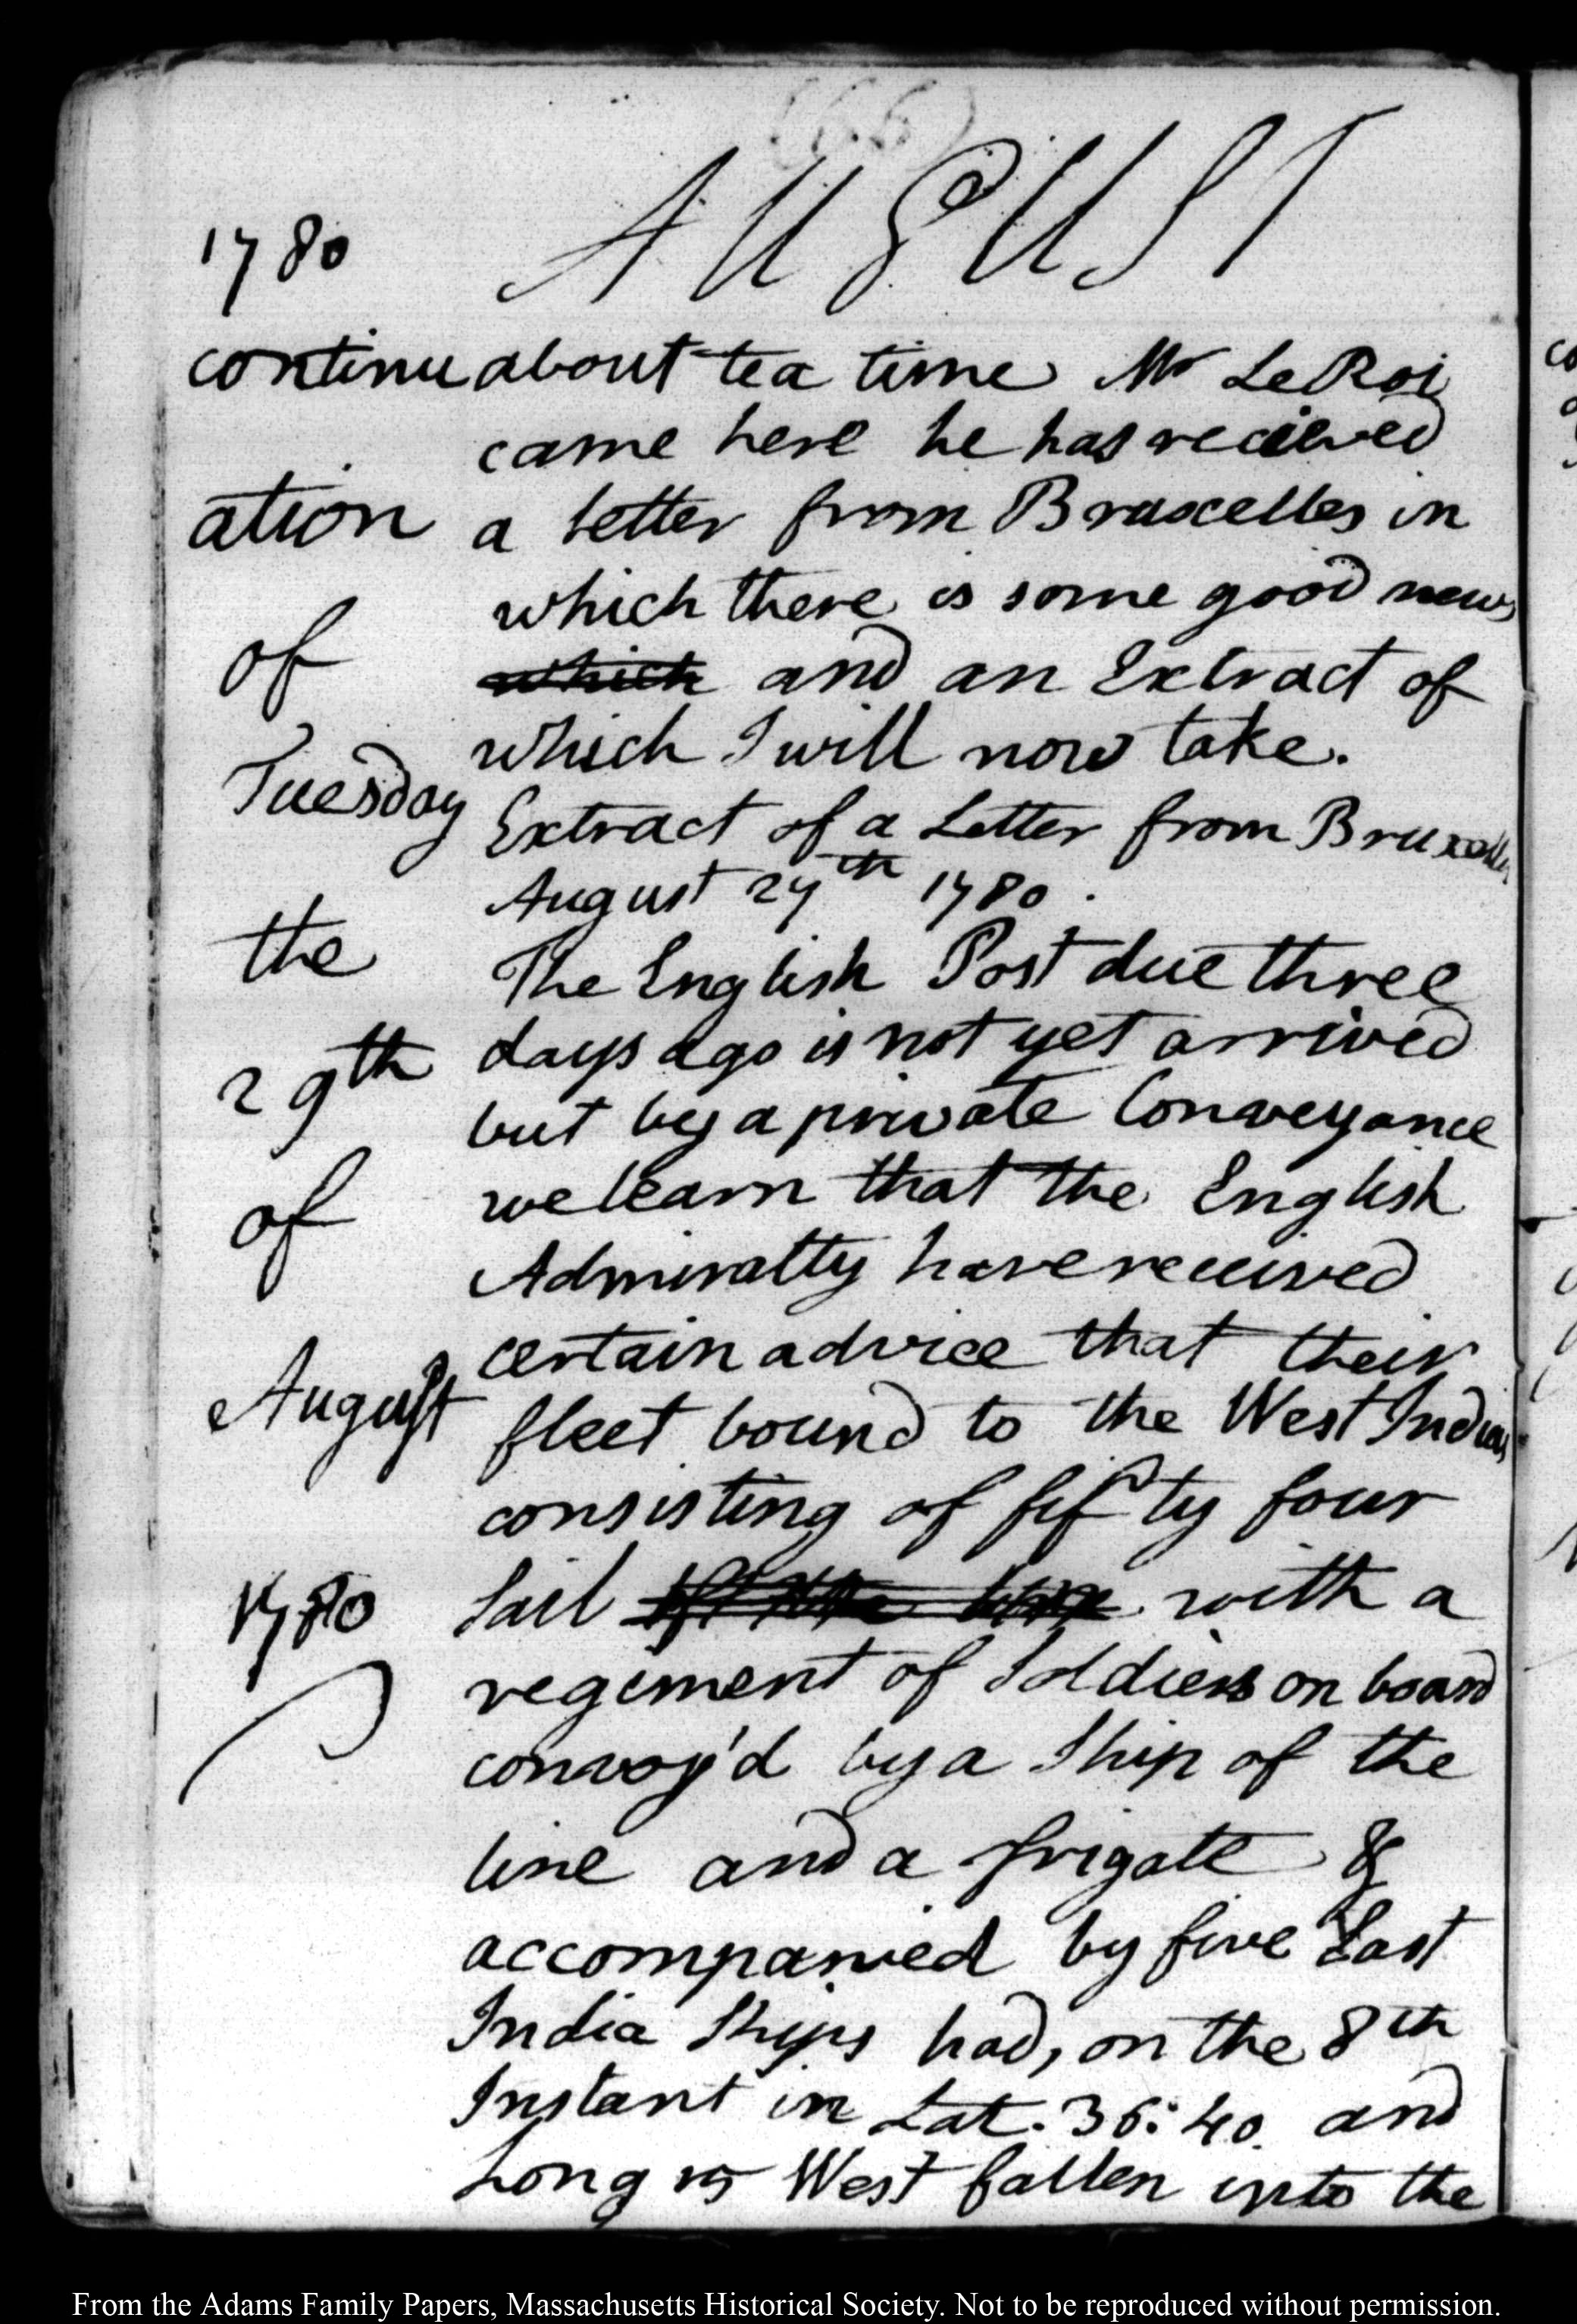 (66)
1780 AUGUST
continu about tea time Mr LeRoi
came here he has recieved
ation a letter from Bruxelles in
which there is some good news
of which and an Extract of
which I will now take.
Tuesday Extract of a Letter from Bruxelles
August 27th 1780.
the The English Post due three
29th days ago is not yet arrived
but by a private Conveyance
of we learn that the English
Admiralty have received
certain advice that their
August fleet bound to the West Indies
consisting of fifty four
1780 Sail of the line with a
regiment of Soldiers on board
convoy'd by a Ship of the
line and a frigate &
accompanied by five East
India Ships had, on the 8th
Instant in Lat. 36:40. and
Long 15 West fallen into the
From the Adams Family Papers, Massachusetts Historical Society. Not to be reproduced without permission.